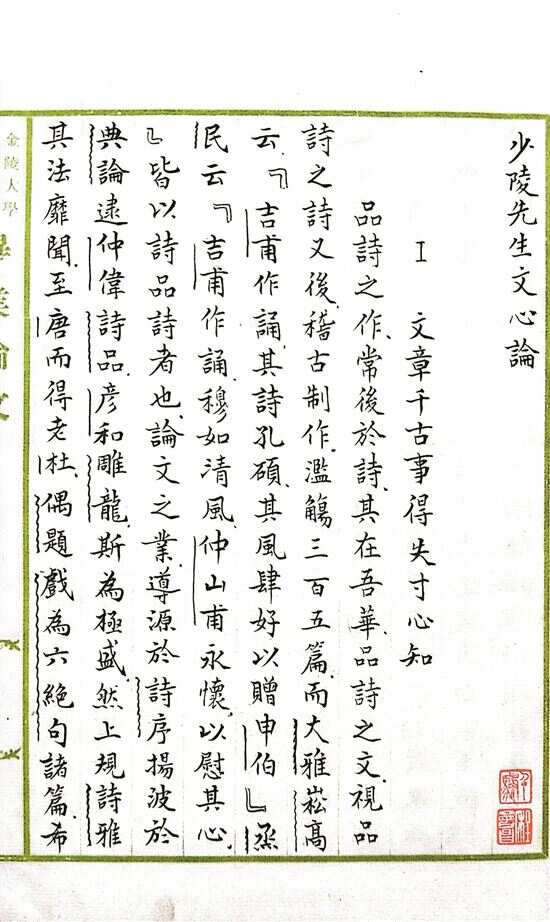 少陵先生文心論
I 文章千古事得失寸心知
品詩之作、常後於詩、其在吾華、品詩之文、視品
詩之詩又後、稽古制作、濫觴三百五篇、而大雅崧高
云、『吉甫作誦、其詩孔碩、其風肆好、以贈申伯』烝
民云『吉甫作誦、穆如清風、仲山甫永懷、以慰其心、
』皆以詩品詩者也、論文之業、導源於詩序、揚波於
典論、逮仲偉詩品、彥和雕龍、斯為極盛、然上規詩雅
其法靡聞、至唐而得老杜、偶題戲為六絕句諸篇、希
金陵大學
畢業論文